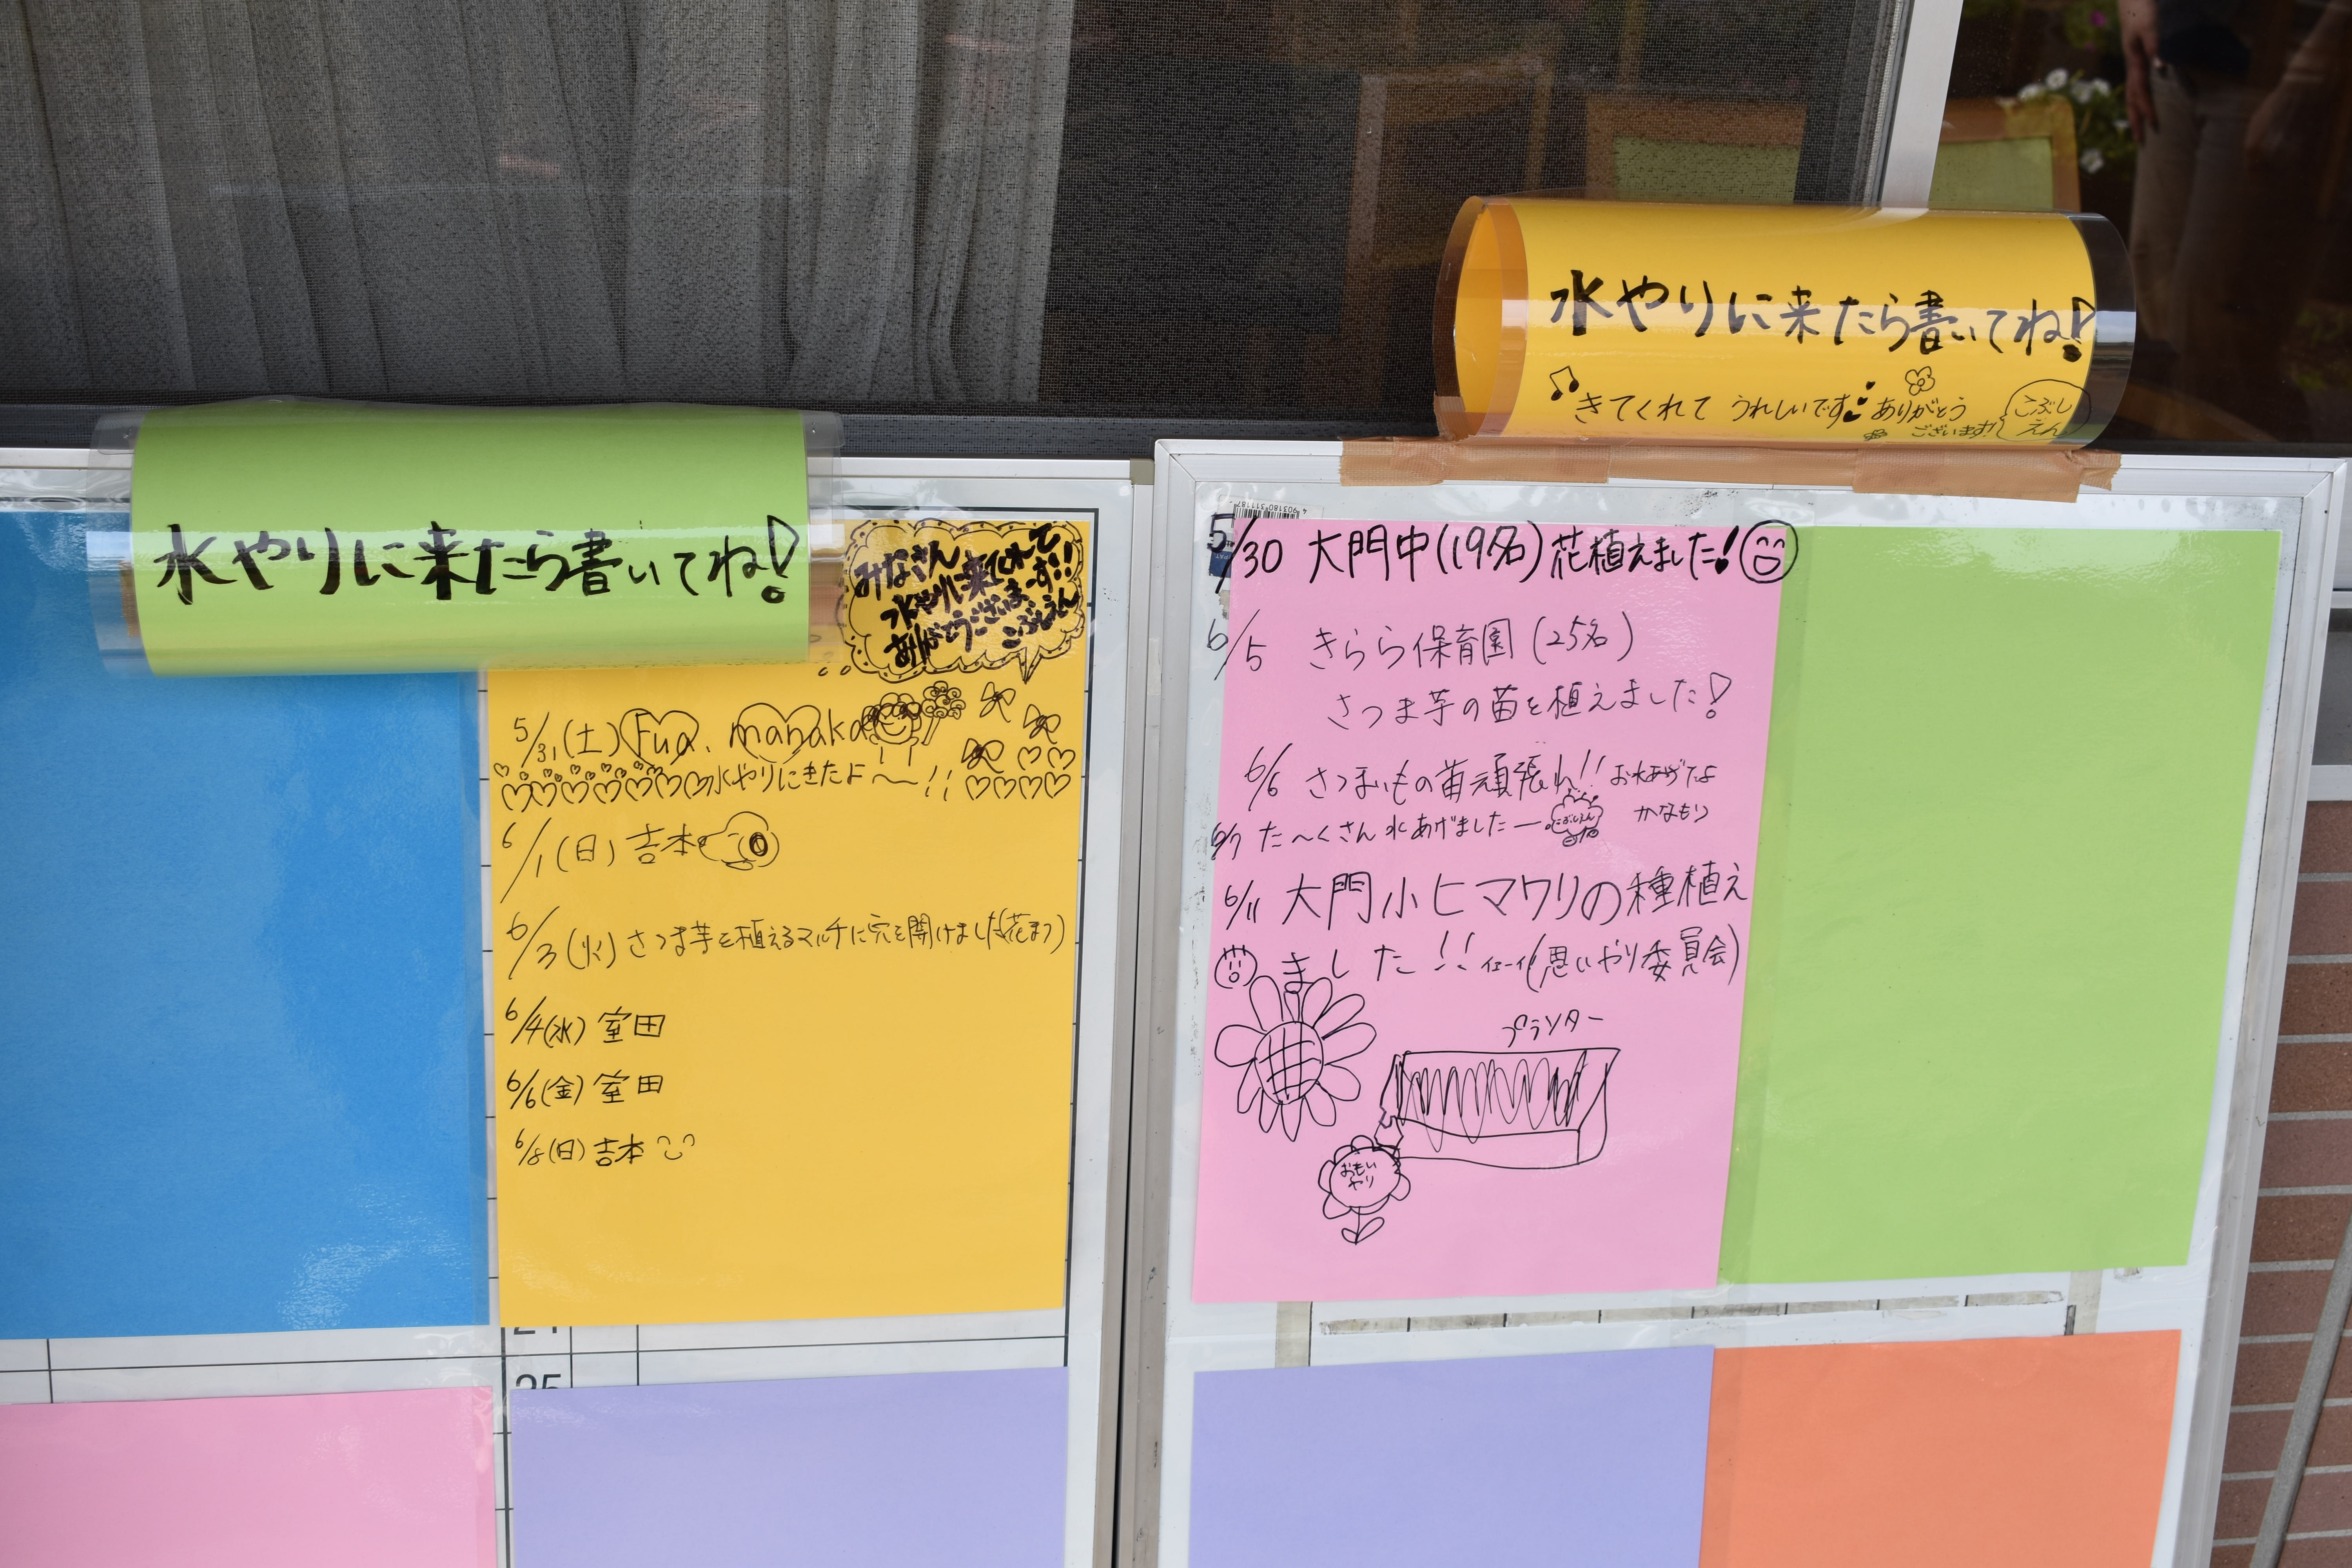 水やりに来たら書いてね!
みなさん
水やりに来てくれて
ありがとうございまーす!!
こぶしえん
5/31(土) Fua. manaka
水やりにきたよ〜〜!!
6/1(日) 吉本
6/3(火) さつま芋を植えるマルチに穴を開けました(花まつ)
6/4(水) 室田
6/6(金) 室田
6/8(日) 吉本
25
水やりに来たら書いてね!
きてくれて うれしいです ありがとう
ございます!
こぶし
えん
4903180311187
5/30 大門中(19名)花植えました!
6/5 きらら保育園(25名)
さつま芋の苗を植えました!
6/6 さつまいもの苗頑張れ!! お水あげたよ
かなもり
6/7 た〜くさん水あげましたー こぶしえん
6/11 大門小ヒマワリの種植え
ました!! イエーイ(思いやり委員会)
プランター
おもい
やり